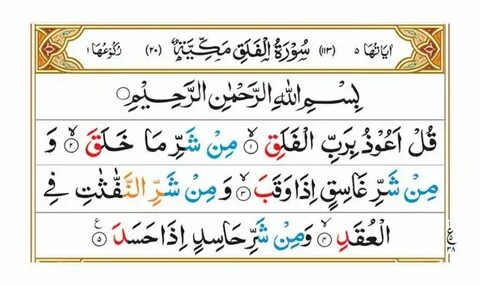 اٰیاتها ۵ (۱۱۳) سُوْرَةُ الْفَلَقِ مَكِّیَّةٌ (۲۰) رُكُوْعُهَا ۱
بِسْمِ اللّٰهِ الرَّحْمٰنِ الرَّحِیْمِ
قُلْ اَعُوْذُ بِرَبِّ الْفَلَقِ ۙ۱ مِنْ شَرِّ مَا خَلَقَ ۙ۲ وَ
مِنْ شَرِّ غَاسِقٍ اِذَا وَقَبَ ۙ۳ وَ مِنْ شَرِّ النَّفّٰثٰتِ فِی
الْعُقَدِ ۙ۴ وَ مِنْ شَرِّ حَاسِدٍ اِذَا حَسَدَ ۵ ع